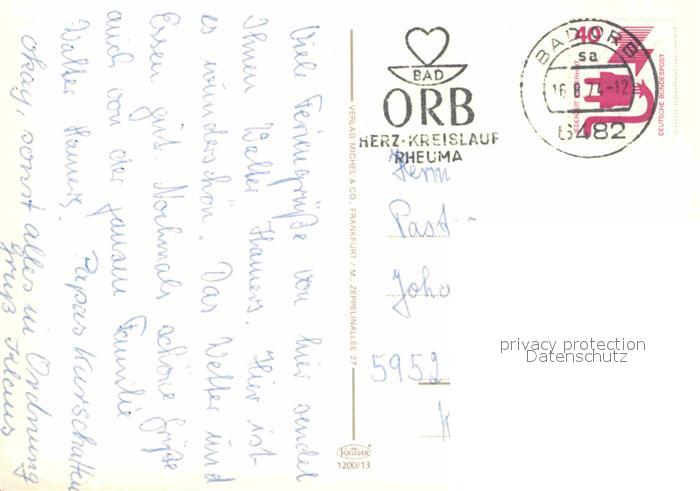 Viele Feriengrüße von hier sendet
Ihnen Walter Hamers. Hier ist
es wunderschön. Das Wetter und
Essen gut. Nochmals schöne Grüße
auch von der ganzen Familie
Walter Hamers. Papas Kurschatten
okay, sonst alles in Ordnung
gruß Klaus
VERLAG MICHEL & CO., FRANKFURT / M. ZEPPELINALLEE 27
KRÜGER
1200/13
BAD
ORB
HERZ·KREISLAUF
RHEUMA
BAD ORB
sa
16.8.74-12
6482
40
JEDERZEIT SICHERHEIT
DEUTSCHE BUNDESPOST
Herrn
Past
Joha
5952
K
privacy protection
Datenschutz